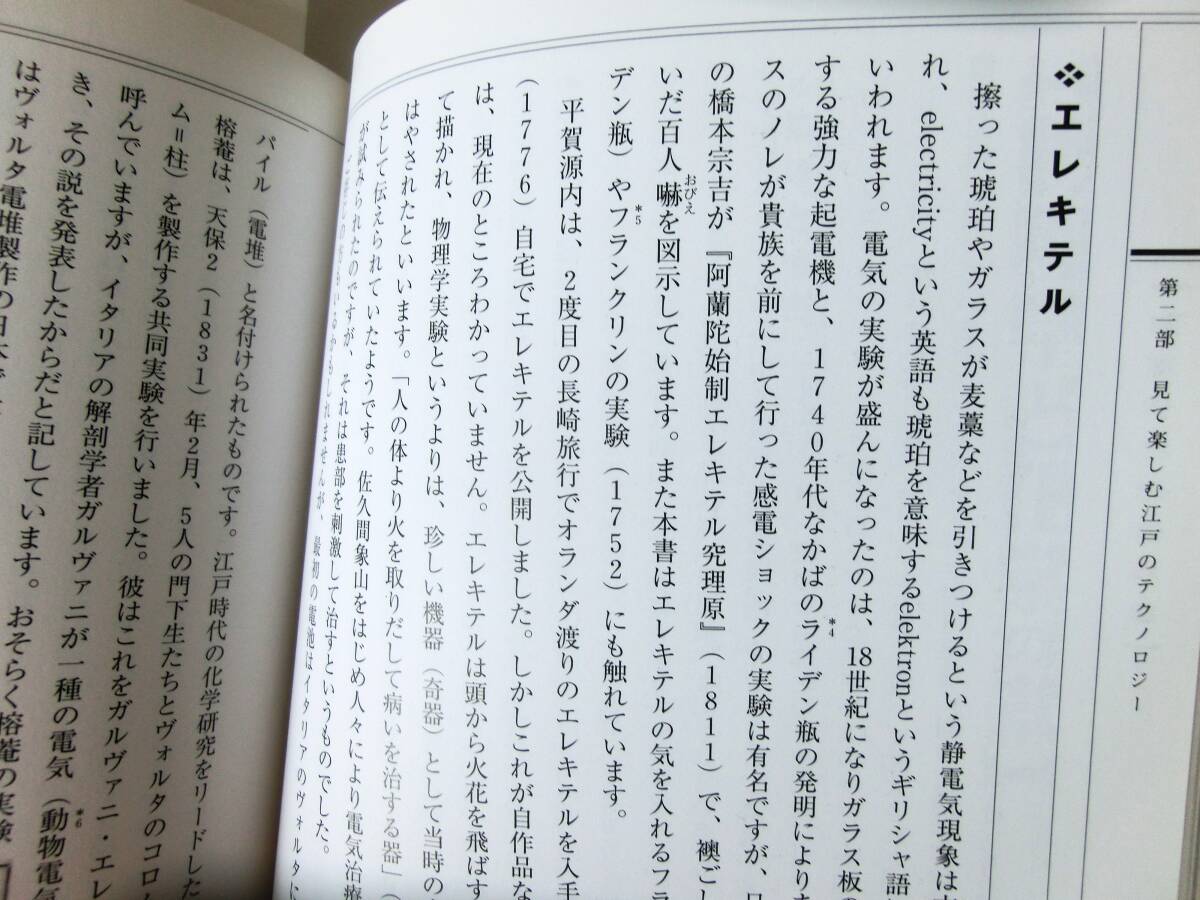 第二部　見て楽しむ江戸のテクノロジー
❖エレキテル
擦った琥珀やガラスが麦藁などを引きつけるという静電気現象は
れ、electricityという英語も琥珀を意味するelektronというギリシャ語
いわれます。電気の実験が盛んになったのは、18世紀になりガラス板の
する強力な起電機と、1740年代なかばのライデン瓶の発明により
*4
スのノレが貴族を前にして行った感電ショックの実験は有名ですが、
の橋本宗吉が『阿蘭陀始制エレキテル究理原』（1811）で、襖ごし
いだ百人嚇を図示しています。また本書はエレキテルの気を入れるフラ
おびえ
デン瓶）やフランクリンの実験（1752）にも触れています。
*5
平賀源内は、2度目の長崎旅行でオランダ渡りのエレキテルを入手
（1776）自宅でエレキテルを公開しました。しかしこれが自作品な
は、現在のところわかっていません。エレキテルは頭から火花を飛ばす
て描かれ、物理学実験というよりは、珍しい機器（奇器）として当時の
はやされたといいます。「人の体より火を取りだして病いを治する器」（
として伝えられていたようです。佐久間象山をはじめ人々により電気治療
が試みられたのですが、それは患部を刺激して治すというものでした。
いるかもしれませんが、最初の電池はイタリアのヴォルタに
パイル（電堆）と名付けられたものです。江戸時代の化学研究をリードした
榕菴は、天保2（1831）年2月、5人の門下生たちとヴォルタのコロ
ム＝柱）を製作する共同実験を行いました。彼はこれをガルヴァニ・エレ
呼んでいますが、イタリアの解剖学者ガルヴァニが一種の電気（動物電気
*6
き、その説を発表したからだと記しています。おそらく榕菴の実験
はヴォルタ電堆製作の日本で